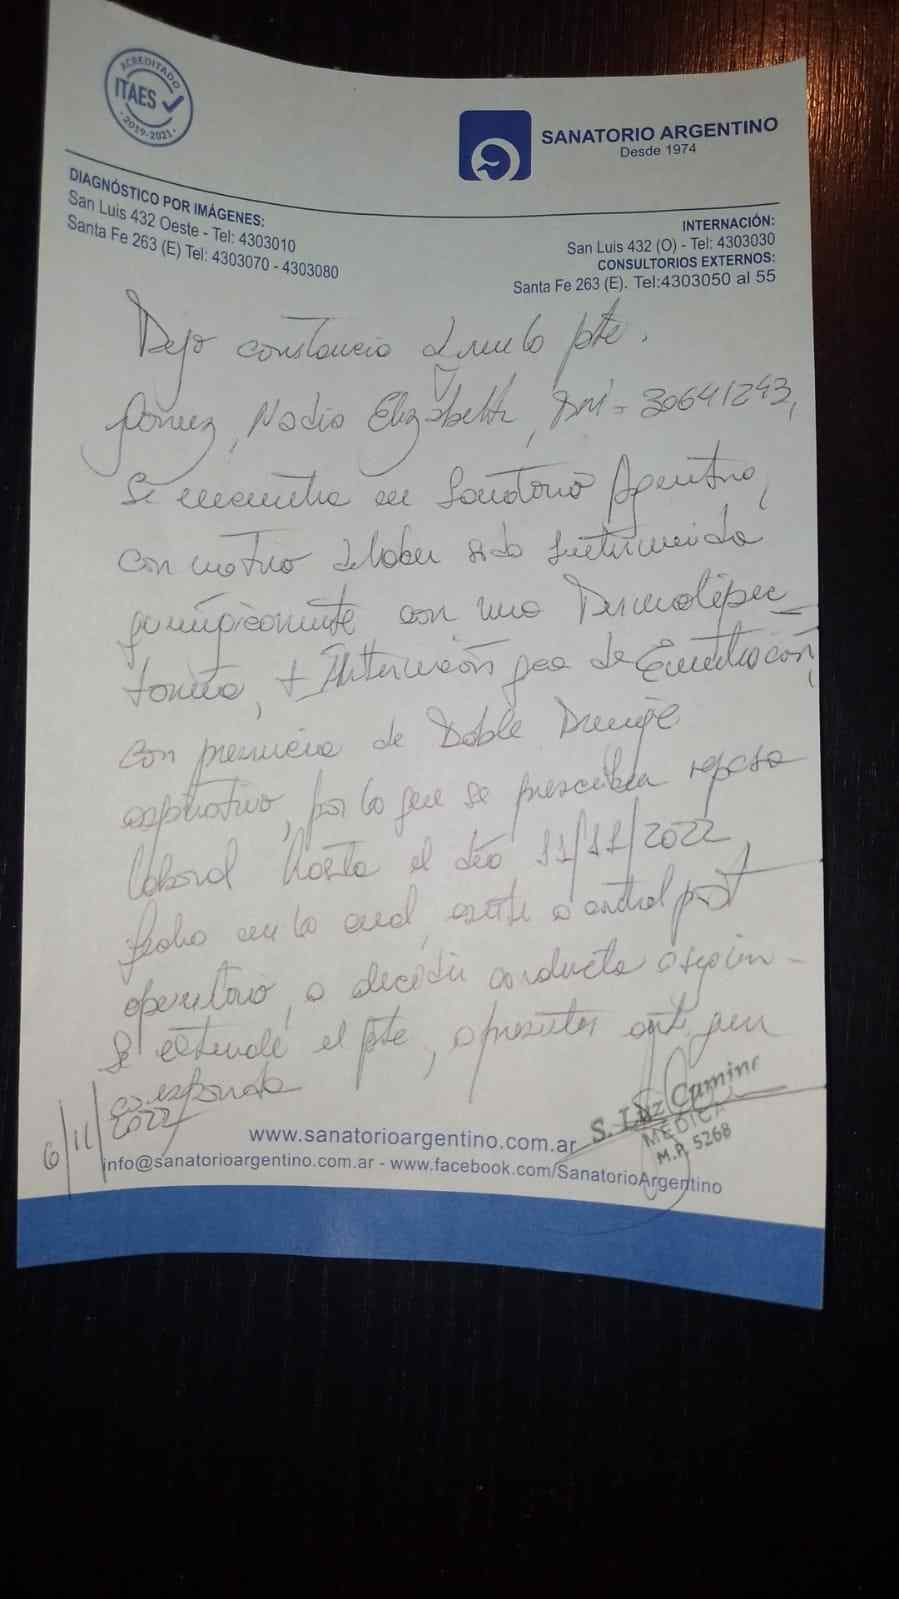 ACREDITADO
ITAES
2019-2021
SANATORIO ARGENTINO
Desde 1974
DIAGNÓSTICO POR IMÁGENES:
San Luis 432 Oeste - Tel: 4303010
Santa Fe 263 (E) Tel: 4303070 - 4303080
INTERNACIÓN:
San Luis 432 (O) - Tel: 4303030
CONSULTORIOS EXTERNOS:
Santa Fe 263 (E). Tel:4303050 al 55
Dejo constancia q' en la pte.
Gomez, Nadia Elizabeth, DNI = 30641243,
Se encuentra en Sanatorio Argentino,
con motivo de haber sido Intervenida
quirúrgicamente con una Dermolipec_
tomía, + Intervención de
con presencia de Doble Drenaje
aspirativo, por lo que se prescribe reposo
laboral hasta el día 11/11/2022,
fecha en la cual, asiste a control post
operatorio, a decidir conducta a seguir. -
Se extiende el pte, a presentar ante quien
corresponda
6/11/2022
www.sanatorioargentino.com.ar
S. Luz Camino
MEDICA
M.P. 5268
info@sanatorioargentino.com.ar - www.facebook.com/SanatorioArgentino